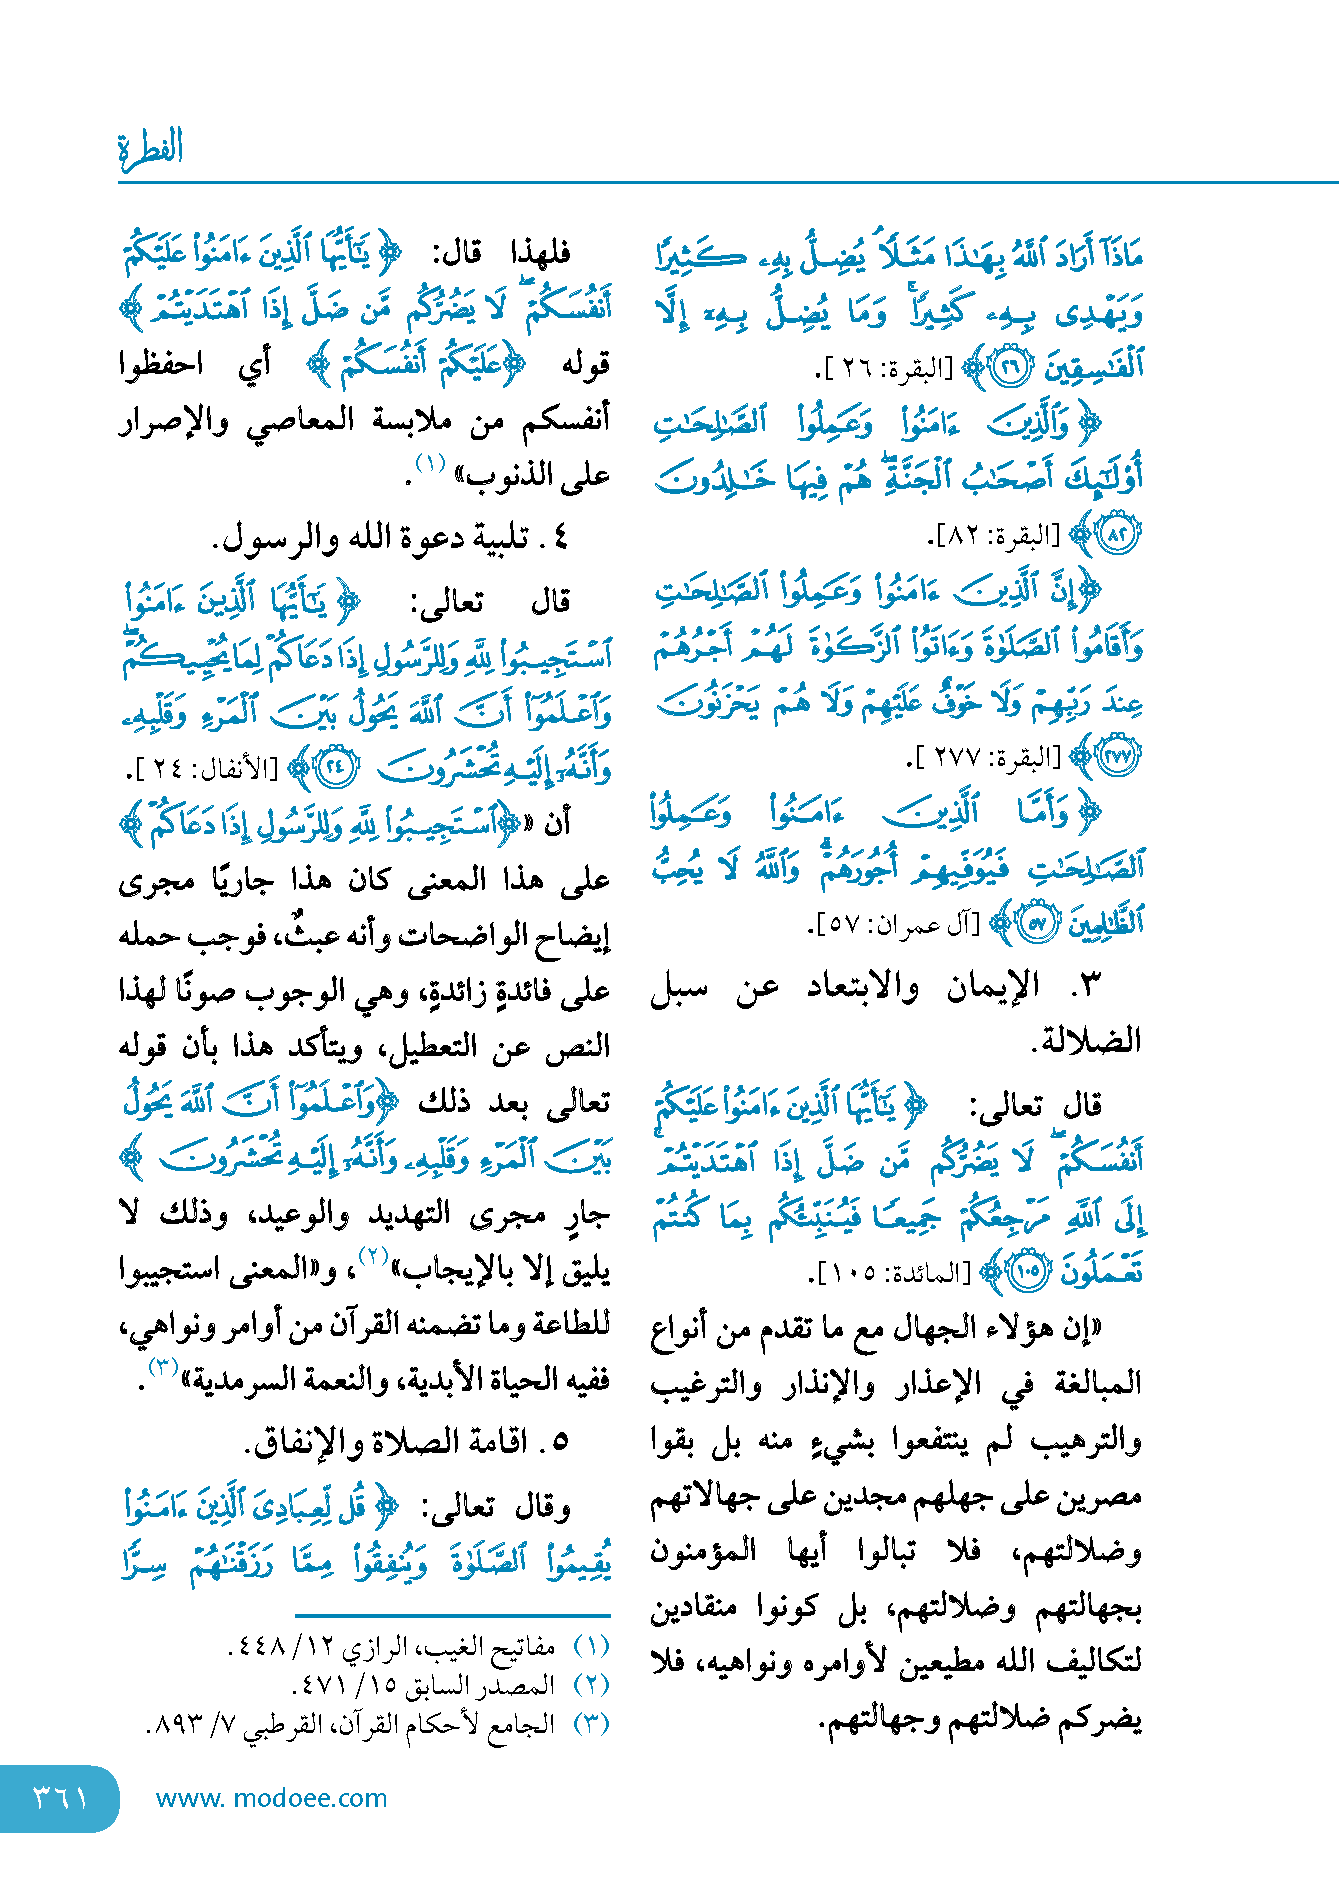 الفطرة
مَاذَآ أَرَادَ ٱللَّهُ بِهَٰذَا مَثَلًا ۘ يُضِلُّ بِهِۦ كَثِيرًا
وَيَهْدِى بِهِۦ كَثِيرًا ۚ وَمَا يُضِلُّ بِهِۦٓ إِلَّا
ٱلْفَٰسِقِينَ ۝٢٦ ﴾ [البقرة: ٢٦ ].
﴿ وَٱلَّذِينَ ءَامَنُوا۟ وَعَمِلُوا۟ ٱلصَّٰلِحَٰتِ
أُو۟لَٰٓئِكَ أَصْحَٰبُ ٱلْجَنَّةِ ۖ هُمْ فِيهَا خَٰلِدُونَ
۝٨٢ ﴾ [البقرة: ٨٢].
﴿إِنَّ ٱلَّذِينَ ءَامَنُوا۟ وَعَمِلُوا۟ ٱلصَّٰلِحَٰتِ
وَأَقَامُوا۟ ٱلصَّلَوٰةَ وَءَاتَوُا۟ ٱلزَّكَوٰةَ لَهُمْ أَجْرُهُمْ
عِندَ رَبِّهِمْ وَلَا خَوْفٌ عَلَيْهِمْ وَلَا هُمْ يَحْزَنُونَ
۝٢٧٧ ﴾ [البقرة: ٢٧٧ ].
﴿ وَأَمَّا ٱلَّذِينَ ءَامَنُوا۟ وَعَمِلُوا۟
ٱلصَّٰلِحَٰتِ فَيُوَفِّيهِمْ أُجُورَهُمْ ۗ وَٱللَّهُ لَا يُحِبُّ
ٱلظَّٰلِمِينَ ۝٥٧ ﴾ [آل عمران: ٥٧].
٣. الإيمان والابتعاد عن سبل
الضلالة.
قال تعالى: ﴿ يَٰٓأَيُّهَا ٱلَّذِينَ ءَامَنُوا۟ عَلَيْكُمْ
أَنفُسَكُمْ ۖ لَا يَضُرُّكُم مَّن ضَلَّ إِذَا ٱهْتَدَيْتُمْ ۚ
إِلَى ٱللَّهِ مَرْجِعُكُمْ جَمِيعًا فَيُنَبِّئُكُم بِمَا كُنتُمْ
تَعْمَلُونَ ۝١٠٥ ﴾ [المائدة: ١٠٥].
«إن هؤلاء الجهال مع ما تقدم من أنواع
المبالغة في الإعذار والإنذار والترغيب
والترهيب لم ينتفعوا بشيءٍ منه بل بقوا
مصرين على جهلهم مجدين على جهالاتهم
وضلالتهم، فلا تبالوا أيها المؤمنون
بجهالتهم وضلالتهم، بل كونوا منقادين
لتكاليف الله مطيعين لأوامره ونواهيه، فلا
يضركم ضلالتهم وجهالتهم.
فلهذا قال: ﴿ يَٰٓأَيُّهَا ٱلَّذِينَ ءَامَنُوا۟ عَلَيْكُمْ
أَنفُسَكُمْ ۖ لَا يَضُرُّكُم مَّن ضَلَّ إِذَا ٱهْتَدَيْتُمْ ﴾
قوله ﴿عَلَيْكُمْ أَنفُسَكُمْ ﴾ أي احفظوا
أنفسكم من ملابسة المعاصي والإصرار
على الذنوب» (١).
٤ . تلبية دعوة الله والرسول.
قال تعالى: ﴿ يَٰٓأَيُّهَا ٱلَّذِينَ ءَامَنُوا۟
ٱسْتَجِيبُوا۟ لِلَّهِ وَلِلرَّسُولِ إِذَا دَعَاكُمْ لِمَا يُحْيِيكُمْ ۖ
وَٱعْلَمُوٓا۟ أَنَّ ٱللَّهَ يَحُولُ بَيْنَ ٱلْمَرْءِ وَقَلْبِهِۦ
وَأَنَّهُۥٓ إِلَيْهِ تُحْشَرُونَ ۝٢٤ ﴾ [الأنفال: ٢٤ ].
أن «﴿ٱسْتَجِيبُوا۟ لِلَّهِ وَلِلرَّسُولِ إِذَا دَعَاكُمْ ﴾
على هذا المعنى كان هذا جاريًا مجرى
إيضاح الواضحات وأنه عبثٌ، فوجب حمله
على فائدةٍ زائدةٍ، وهي الوجوب صونًا لهذا
النص عن التعطيل، ويتأكد هذا بأن قوله
تعالى بعد ذلك ﴿وَٱعْلَمُوٓا۟ أَنَّ ٱللَّهَ يَحُولُ
بَيْنَ ٱلْمَرْءِ وَقَلْبِهِۦ وَأَنَّهُۥٓ إِلَيْهِ تُحْشَرُونَ ﴾
جارٍ مجرى التهديد والوعيد، وذلك لا
يليق إلا بالإيجاب»(٢)، و«المعنى استجيبوا
للطاعة وما تضمنه القرآن من أوامر ونواهي،
ففيه الحياة الأبدية، والنعمة السرمدية»(٣).
٥ . اقامة الصلاة والإنفاق.
وقال تعالى: ﴿ قُل لِّعِبَادِىَ ٱلَّذِينَ ءَامَنُوا۟
يُقِيمُوا۟ ٱلصَّلَوٰةَ وَيُنفِقُوا۟ مِمَّا رَزَقْنَٰهُمْ سِرًّا
(١) مفاتيح الغيب، الرازي ١٢/ ٤٤٨.
(٢) المصدر السابق ١٥/ ٤٧١.
(٣) الجامع لأحكام القرآن، القرطبي ٧/ ٨٩٣.
www. modoee.com
٣٦١